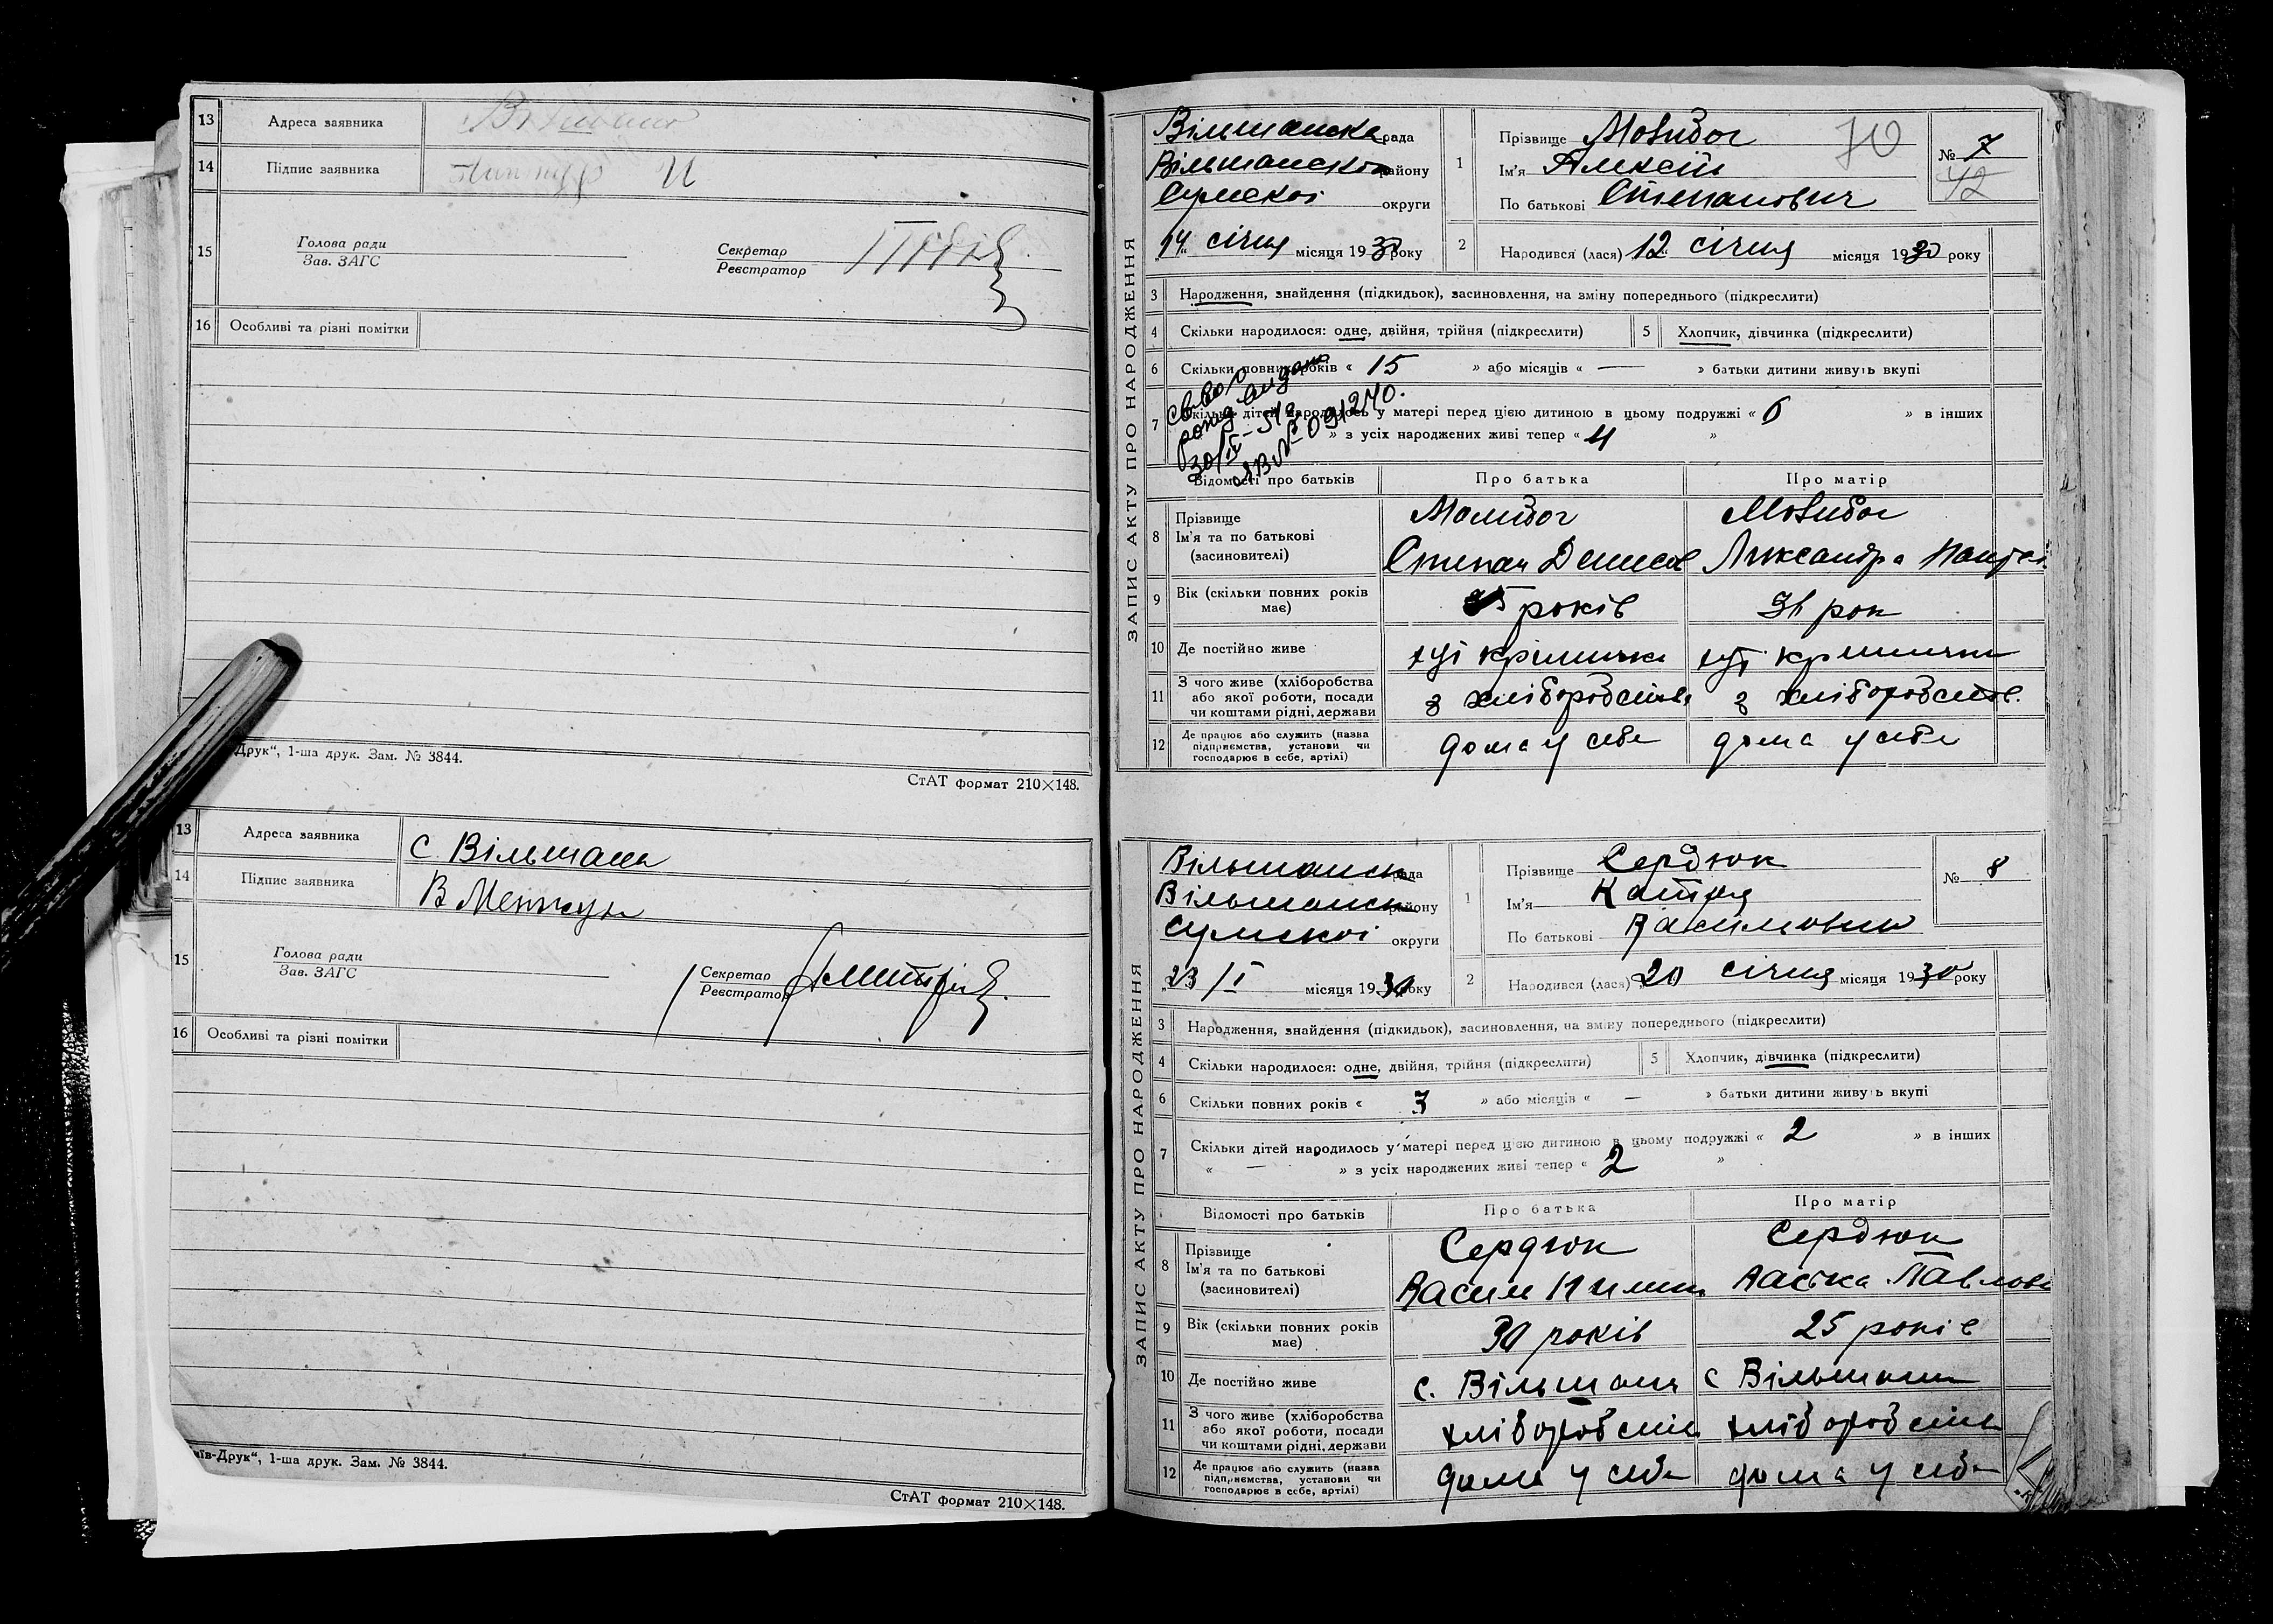 13 Адреса заявника
14 Підпис заявника
15 Голова ради
Зав. ЗАГС
Секретар
Реєстратор
16 Особливі та різні помітки
Друк“, 1-ша друк. Зам. № 3844.
СтАТ формат 210×148.
13 Адреса заявника с. Вільшана
14 Підпис заявника
15 Голова ради
Зав. ЗАГС
Секретар
Реєстратор
16 Особливі та різні помітки
їв-Друк“, 1-ша друк. Зам. № 3844.
СтАТ формат 210×148.
ЗАПИС АКТУ ПРО НАРОДЖЕННЯ
Вільшанска рада
Вільшанскої району
Сумскої округи
„14“ січня місяця 1930 року
1 Прізвище
Ім'я Алексій
По батькові Степанович
70
№ 7
42
2 Народився (лася) 12 січня місяця 1930 року
3 Народження, знайдення (підкидьок), засиновлення, на зміну попереднього (підкреслити)
4 Скільки народилося: одне, двійня, трійня (підкреслити)
5 Хлопчик, дівчинка (підкреслити)
6 Скільки повних років « 15 » або місяців « — » батьки дитини живуть вкупі
7 Скільки дітей народилось у матері перед цією дитиною в цьому подружжі « 6 » в інших
» з усіх народжених живі тепер « 4 »
Відомості про батьків Про батька Про матір
8 Прізвище
Ім'я та по батькові
(засиновителі)
Степан Денисов Александра
9 Вік (скільки повних років має) 35 років
10 Де постійно живе
11 З чого живе (хліборобства
або якої роботи, посади
чи коштами рідні, держави
з хліборобства з хліборобств.
12 Де працює або служить (назва
підприємства, установи чи
господарює в себе, артілі)
дома у себе дома у себе
ЗАПИС АКТУ ПРО НАРОДЖЕННЯ
Вільшанск рада
Вільшанск району
Сумскої округи
„23/I місяця 1930 року
1 Прізвище Сердюк
Ім'я Катря
По батькові
№ 8
2 Народився (лася) 20 січня місяця 1930 року
3 Народження, знайдення (підкидьок), засиновлення, на зміну попереднього (підкреслити)
4 Скільки народилося: одне, двійня, трійня (підкреслити)
5 Хлопчик, дівчинка (підкреслити)
6 Скільки повних років « 3 » або місяців « — » батьки дитини живуть вкупі
7 Скільки дітей народилось у матері перед цією дитиною в цьому подружжі « 2 » в інших
« — » з усіх народжених живі тепер « 2 »
Відомості про батьків Про батька Про матір
8 Прізвище Сердюк Сердюк
Ім'я та по батькові
(засиновителі)
Павлов
9 Вік (скільки повних років має) 30 років 25 років
10 Де постійно живе с. Вільшана с Вільшана
11 З чого живе (хліборобства
або якої роботи, посади
чи коштами рідні, держави
хліборобств хліборобств
12 Де працює або служить (назва
підприємства, установи чи
господарює в себе, артілі)
дома у себе дома у себе